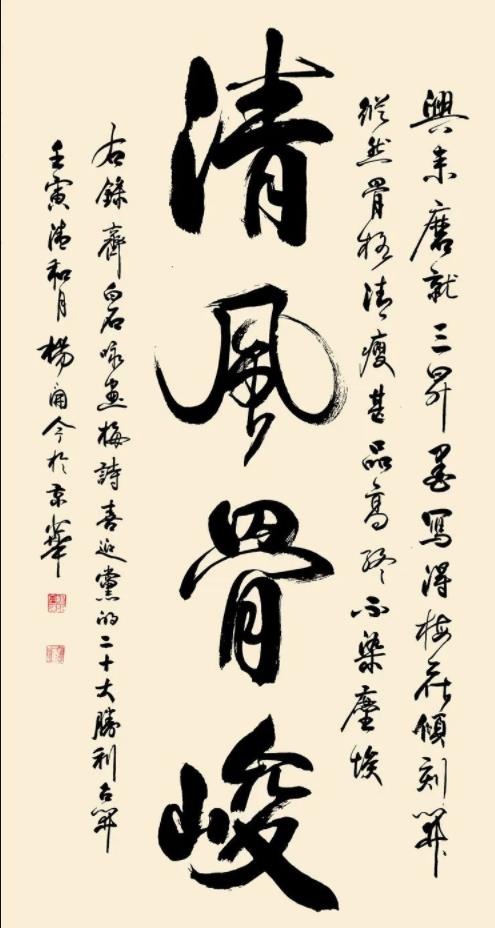 興來磨就三昇墨寫得梅花傾刻開
縱然骨格清瘦甚品高終不染塵埃
清風骨峻
右錄齊白石咏畫梅詩喜迎黨的二十大勝利召開
壬寅清和月楊今於京華